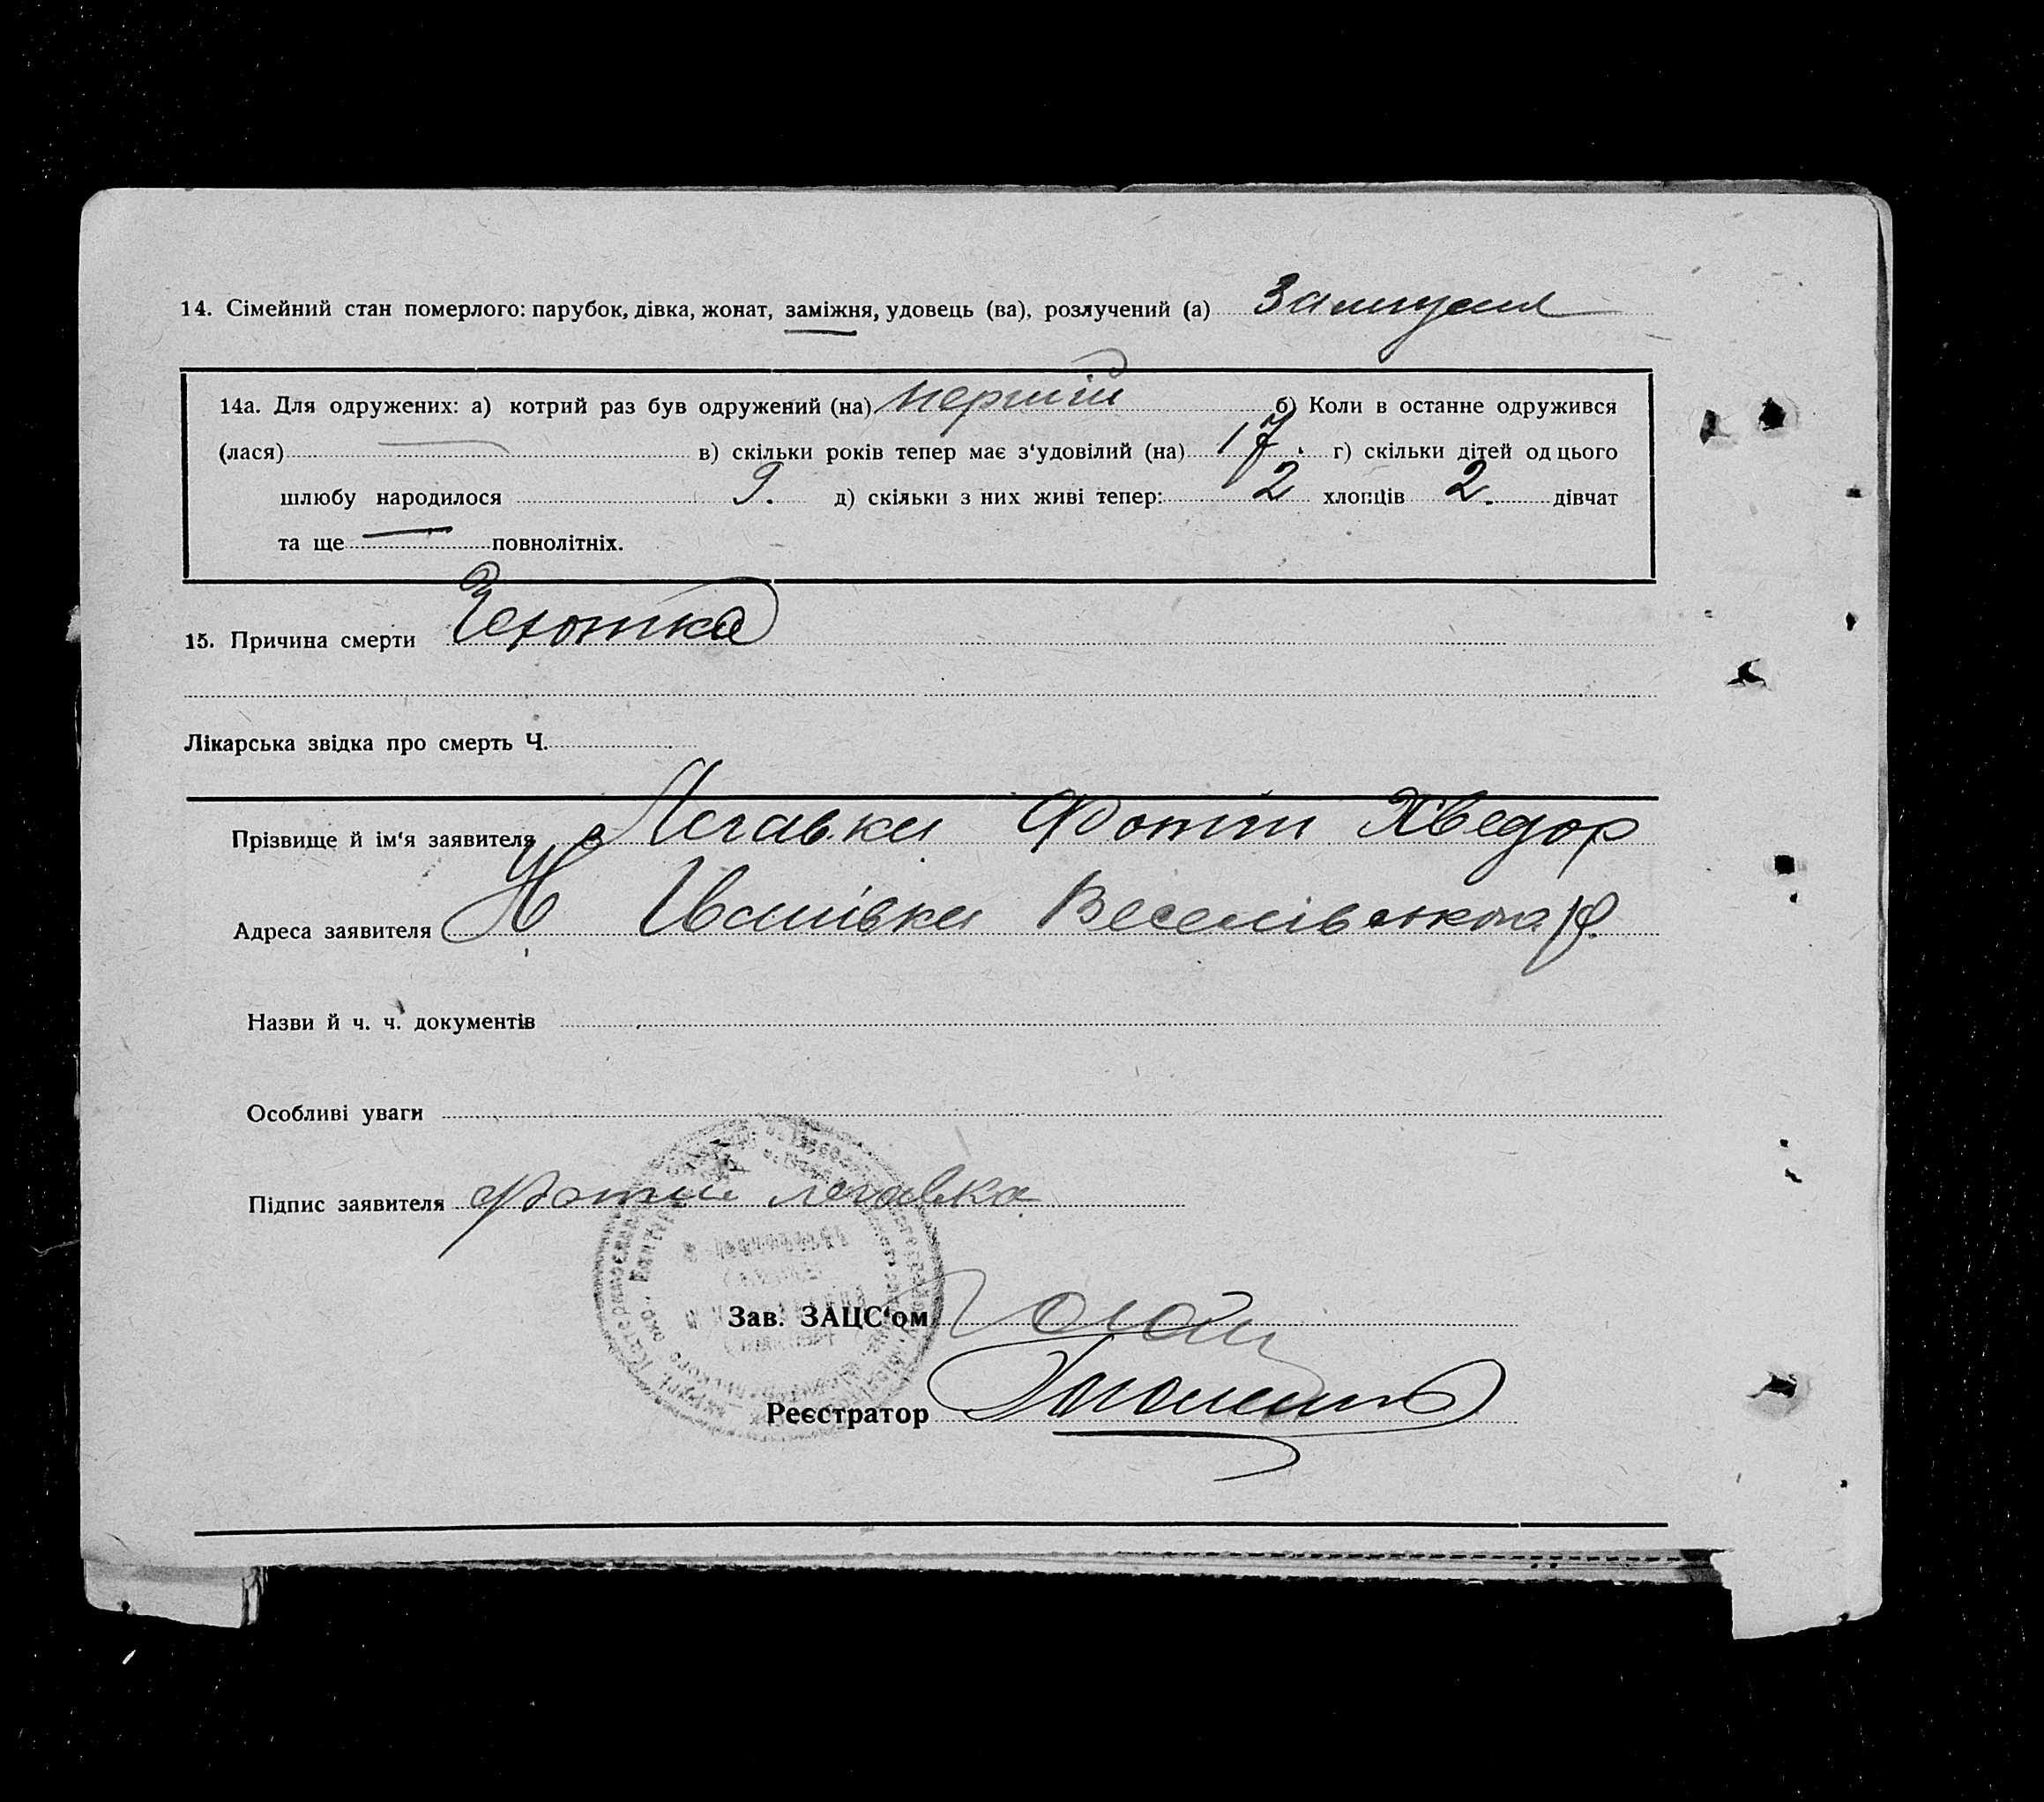 14. Сімейний стан померлого: парубок, дівка, жонат, заміжня, удовець (ва), розлучений (а) Замужня
14а. Для одружених: а) котрий раз був одружений (на) перший б) Коли в останне одружився
(лася) — в) скільки років тепер має з‘удовілий (на) 17. г) скільки дітей од цього
шлюбу народилося 9. д) скільки з них живі тепер: 2 хлопців 2. дівчат
та ще — повнолітніх.
15. Причина смерти Чехотка
Лікарська звідка про смерть Ч.
Прізвище й ім‘я заявителя Легавка Фотій Хведор
Адреса заявителя Х Іванівка Веселівського р.
Назви й ч. ч. документів
Особливі уваги
Підпис заявителя Фотий легавка
Зав. ЗАЦС‘ом
Реєстратор